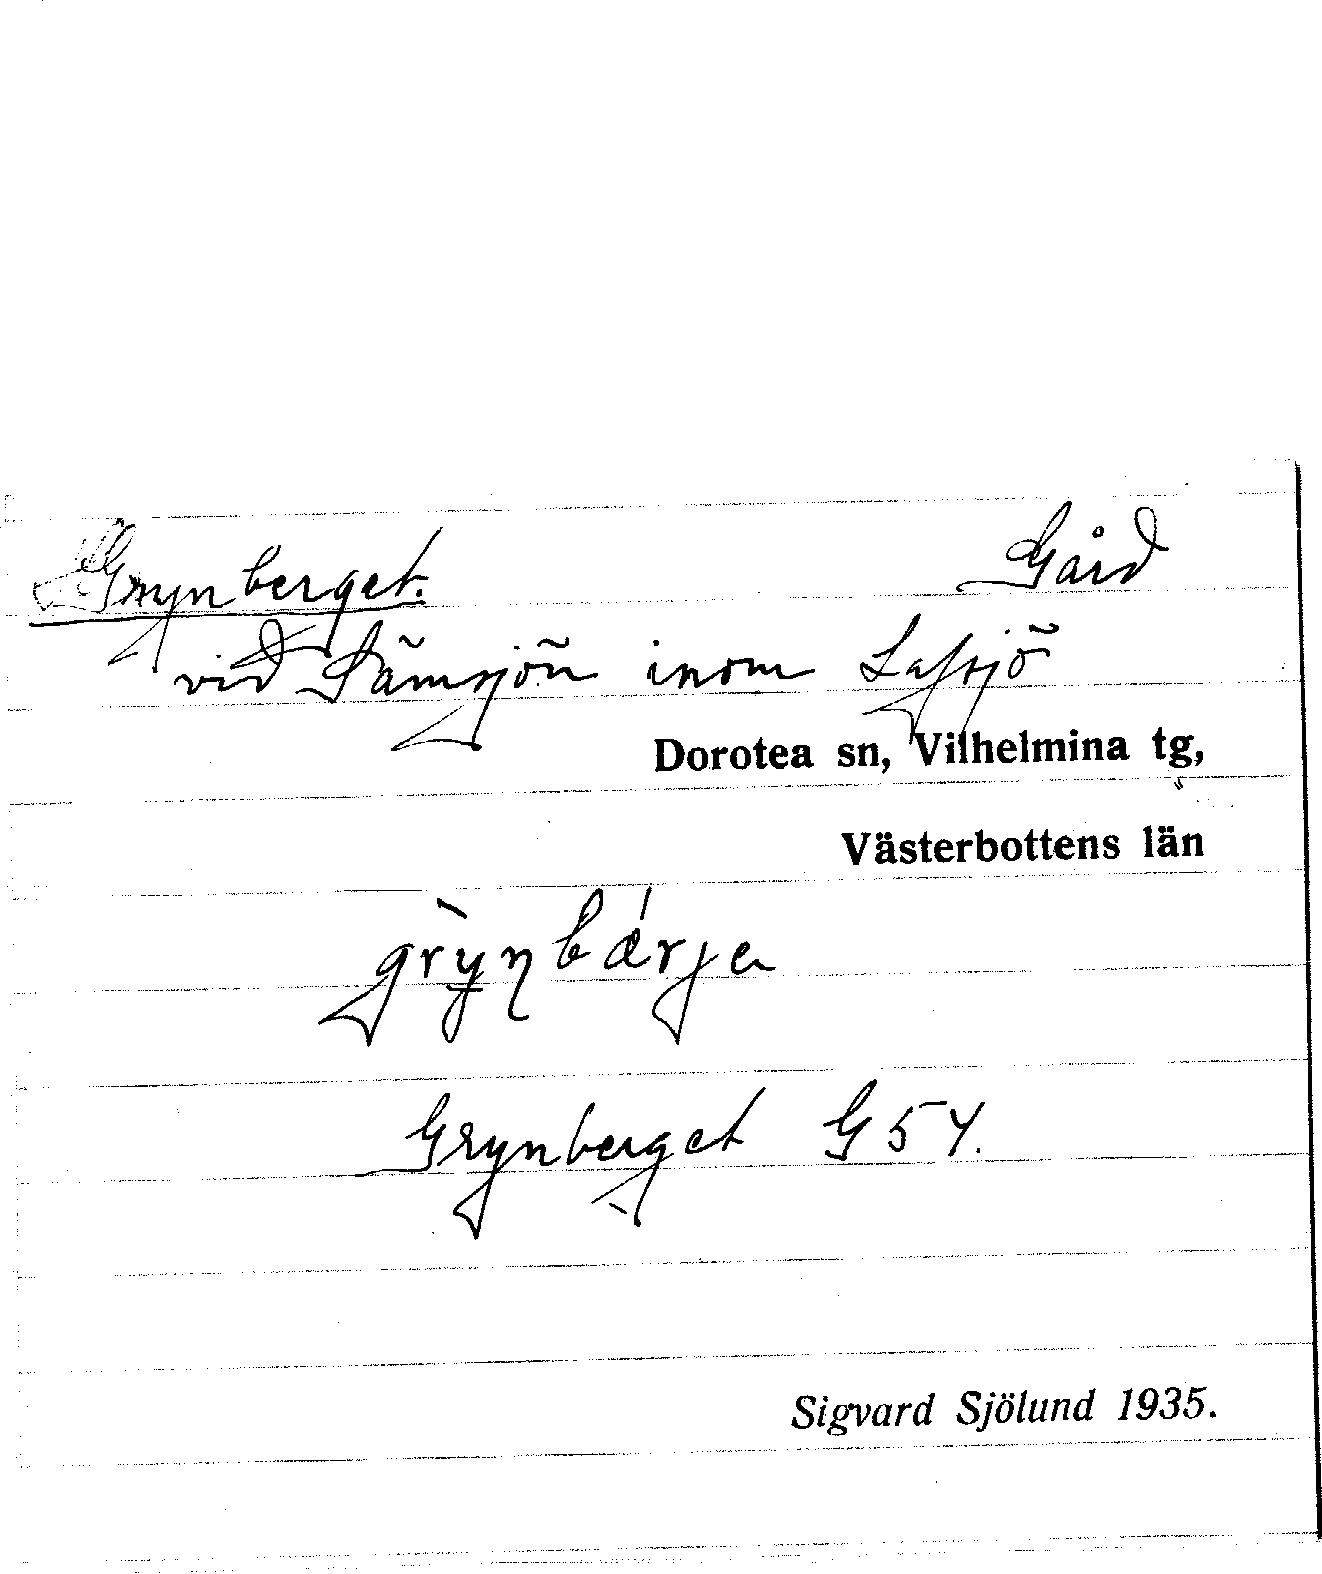 Grynberget. Gård
vid Sämsjön inom Lafsjö
Dorotea sn, Vilhelmina tg,
Västerbottens län
grỳnbǽrje
Grynberget G 54.
Sigvard Sjölund 1935.